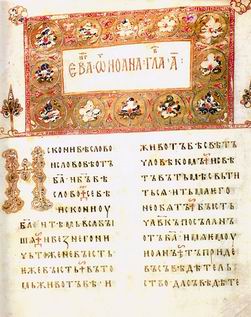 ЕВА Ѿ ИОАНА ГЛА А҃
ИСКОНИ БѢ СЛОВО
И СЛОВО БѢ ОТЪ
БА҃ И БЪ҃ БѢ
СЛОВО СЕ БѢ
ИСКОНИ ОУ
БА҃ И ТѢМЬ ВЬСА БЫ
ШѦ И БЕЖ НЕГО НИ
ЧЬТОЖЕ НЕ БЫСТЬ
ѤЖЕ БЫСТЬ ВЪ ТО
МЬ ЖИВОТЪ БѢ И
ЖИВОТЪ БѢ СВѢТЪ
ЧЛОВѢКОМЪ И СВѢ
ТЪ ВЪ ТЬМѢ СВЬТИ
ТЬСѦ И ТЬМА ѤГО
НЕ ОБѦТЪ БЫСТЬ
ЧЛ҃ВКЪ ПОСЪЛАНЪ
ОТЪ БА҃ ИМѦ ѤМОУ
ИОАНЪ ТЪ ПРИДЕ
ВЪ СЪВѢДѢТЕЛЬ
СТВО ДА СЪВѢДѢТЕ